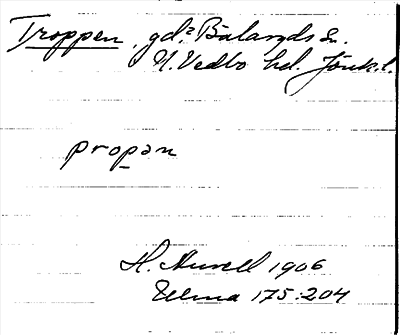 Troppen, gd. Bälaryds sn.
N. Vedbo hd. Jönk.l.
propan
H. Aurell 1906
Ulma 175:204